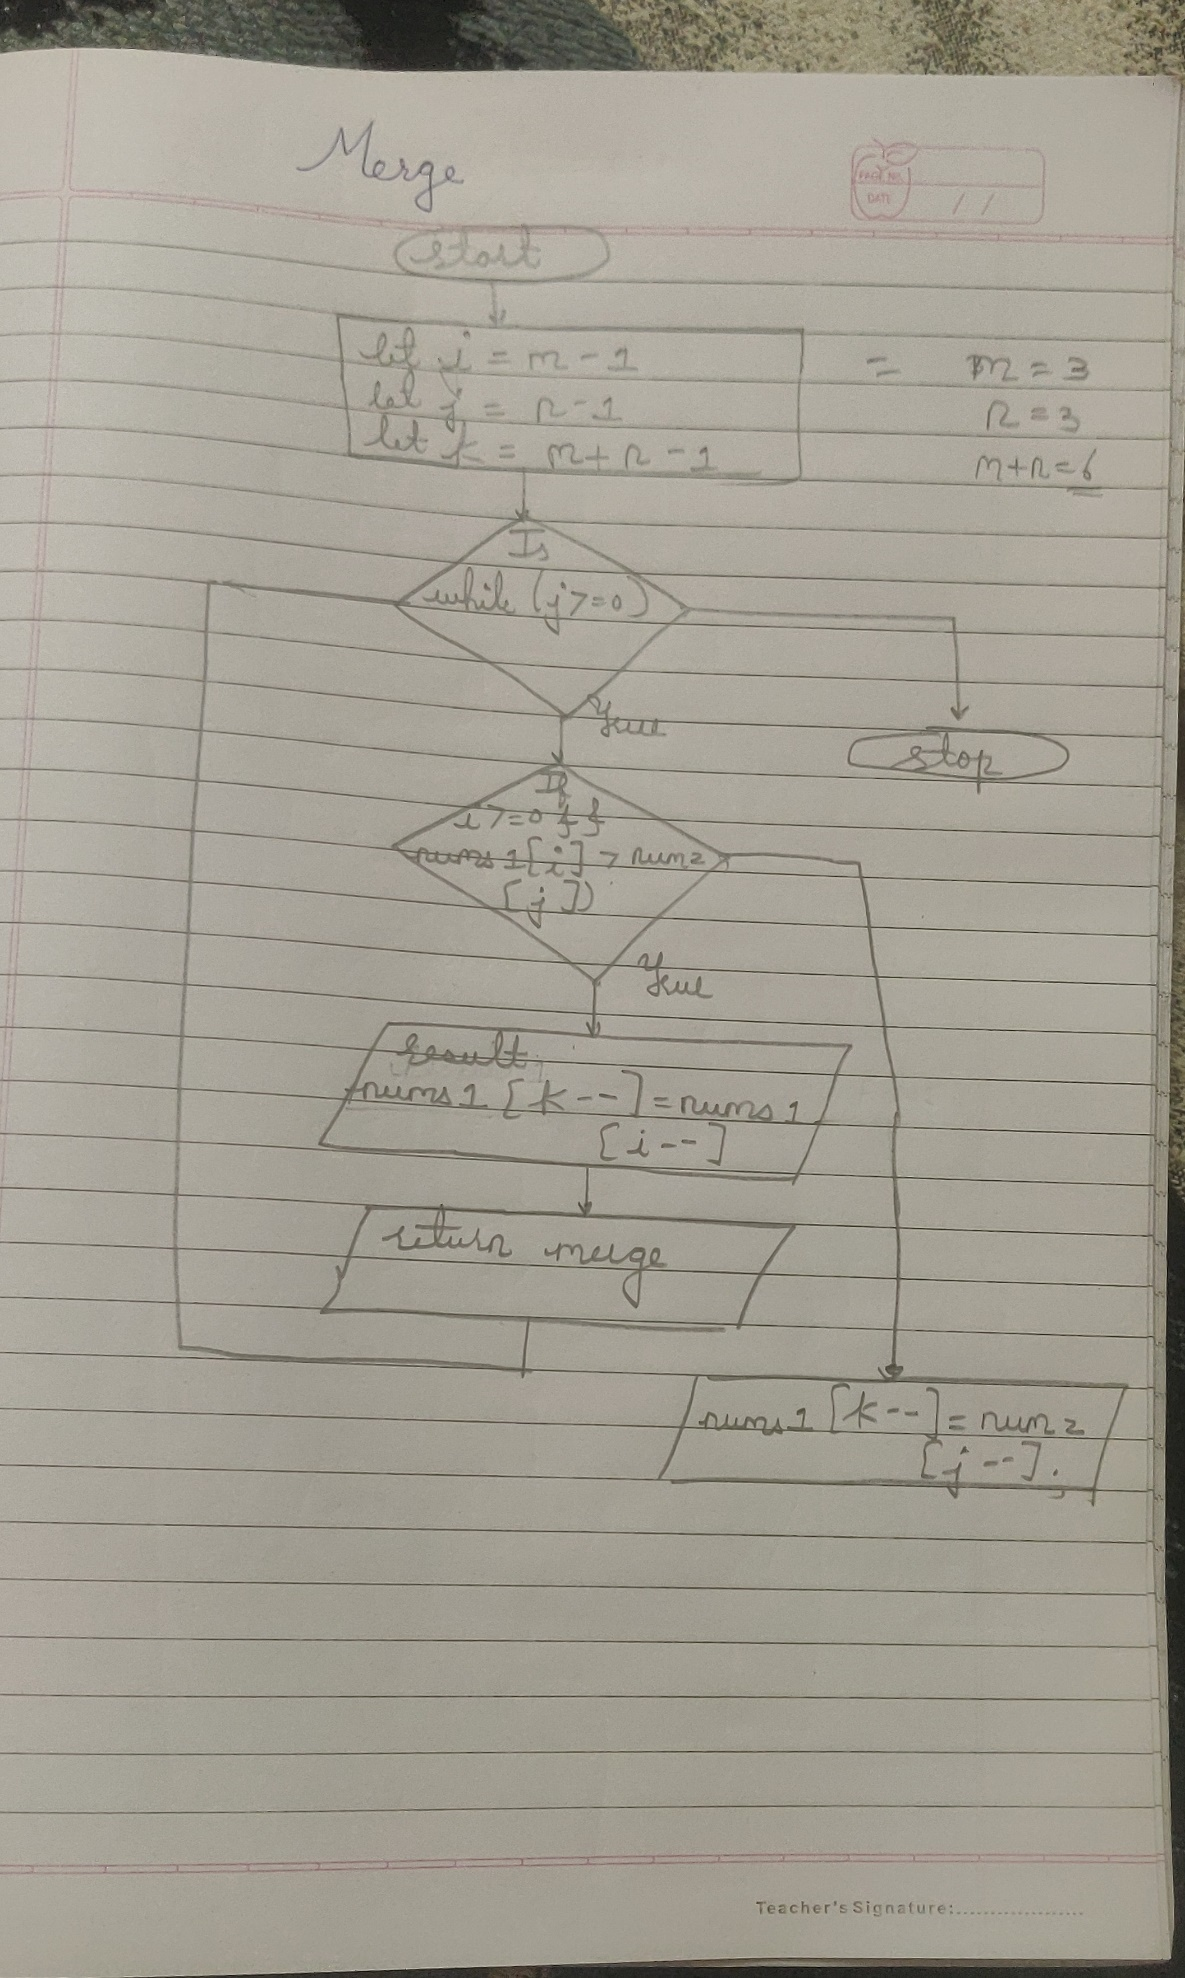 Merge
PAGE NO.
DATE / /
start
let i = m - 1
let j = n - 1
let k = m + n - 1
= m = 3
n = 3
m+n = 6
Is
while (j >= 0)
True
stop
If
i >= 0 &&
nums1[i] > num2
[j])
True
result
nums1 [k--] = nums1
[i--]
return merge
nums1 [k--] = num2
[j--].
Teacher's Signature:....................